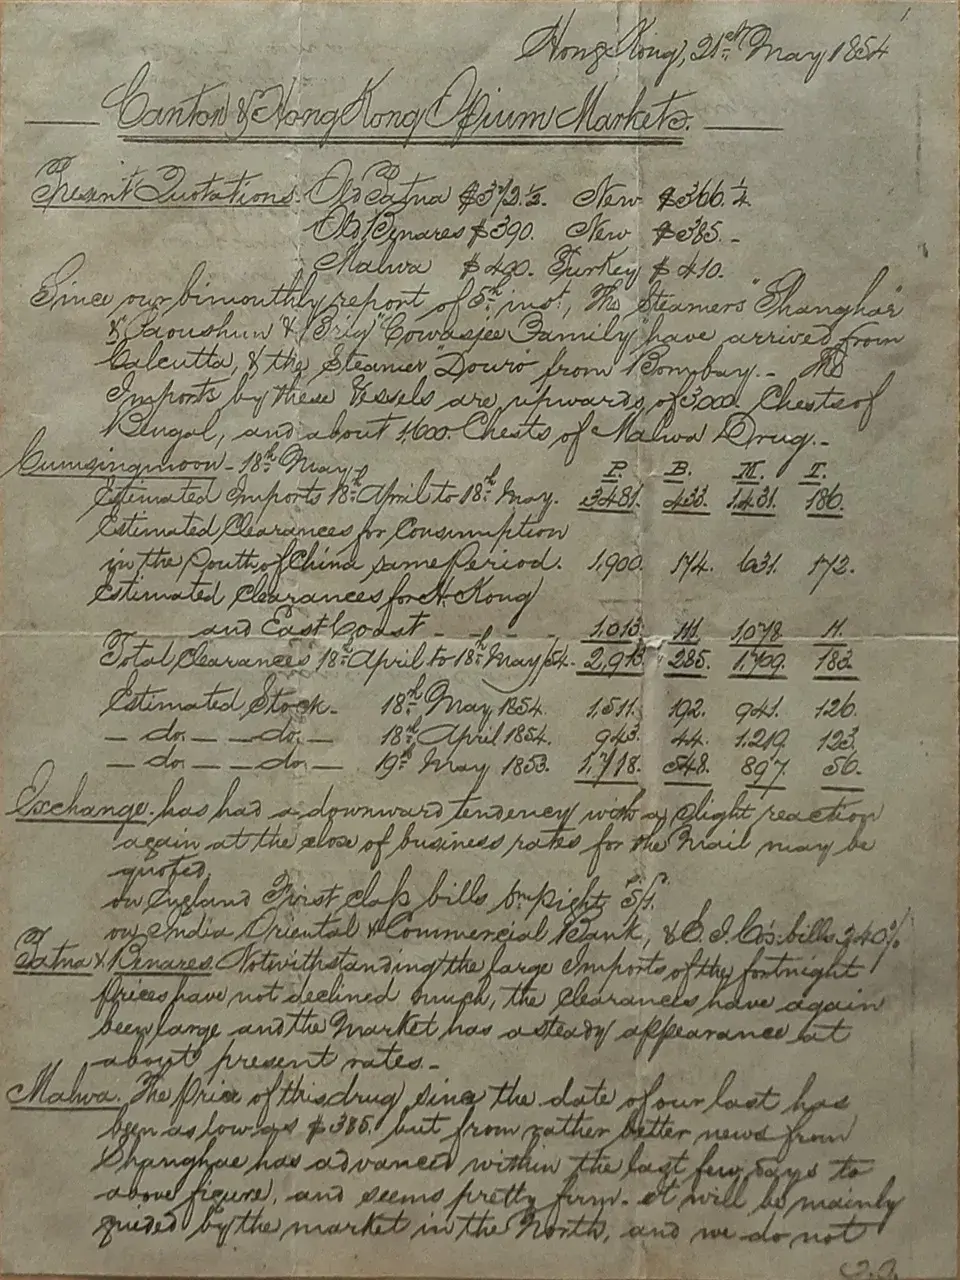 Hong Kong, 21st May 1854
Canton & Hong Kong Opium Markets.
Present Quotations. Old Patna $372.½. New $366.¼.
Old Benares $390. New $385. -
Malwa $400. Turkey $410.
Since our bimonthly report of 5th inst., The Steamers "Shanghae"
& "Paoushun" & Brig "Cowasjee Family" have arrived from
Calcutta, & the Steamer "Douro" from Bombay. - The
Imports by these Vessels are upwards of 3,000. Chests of
Bengal, and about 1,600. Chests of Malwa Drug. -
Cumsingmoon - 18th May - P. B. M. T.
Estimated Imports 18th April to 18th May. 3481. 433. 1,431. 186.
Estimated Clearances for Consumption
in the South of China same Period. 1,900. 174. 631. 172.
Estimated Clearances for H. Kong
and East Coast - - - - 1,013. 111. 1,078. 11.
Total Clearances 18th April to 18th May/54. - 2,913. 285. 1,709. 183.
Estimated Stock - 18th May 1854. 1,511. 192. 941. 126.
— do. — — do. — 18th April 1854. 943. 44. 1,219. 123.
— do. — — do. — 19th May 1853. 1,718. 548. 897. 56.
Exchange. has had a downward tendency with a slight reaction
again at the close of business rates for the Mail may be
quoted,
on England First class bills 6m/sight, 5/1.
on India Oriental & Commercial Bank, & E. I. Co's. bills 240%
Patna & Benares. Notwithstanding the large Imports of the fortnight
Prices have not declined much, the Clearances have again
been large and the Market has a steady appearance at
about present rates. -
Malwa. The Price of this drug since the date of our last has
been as low as $385. but from rather better news from
Shanghae has advanced within the last few days to
above figure, and seems pretty firm - it will be mainly
guided by the market in the North, and we do not